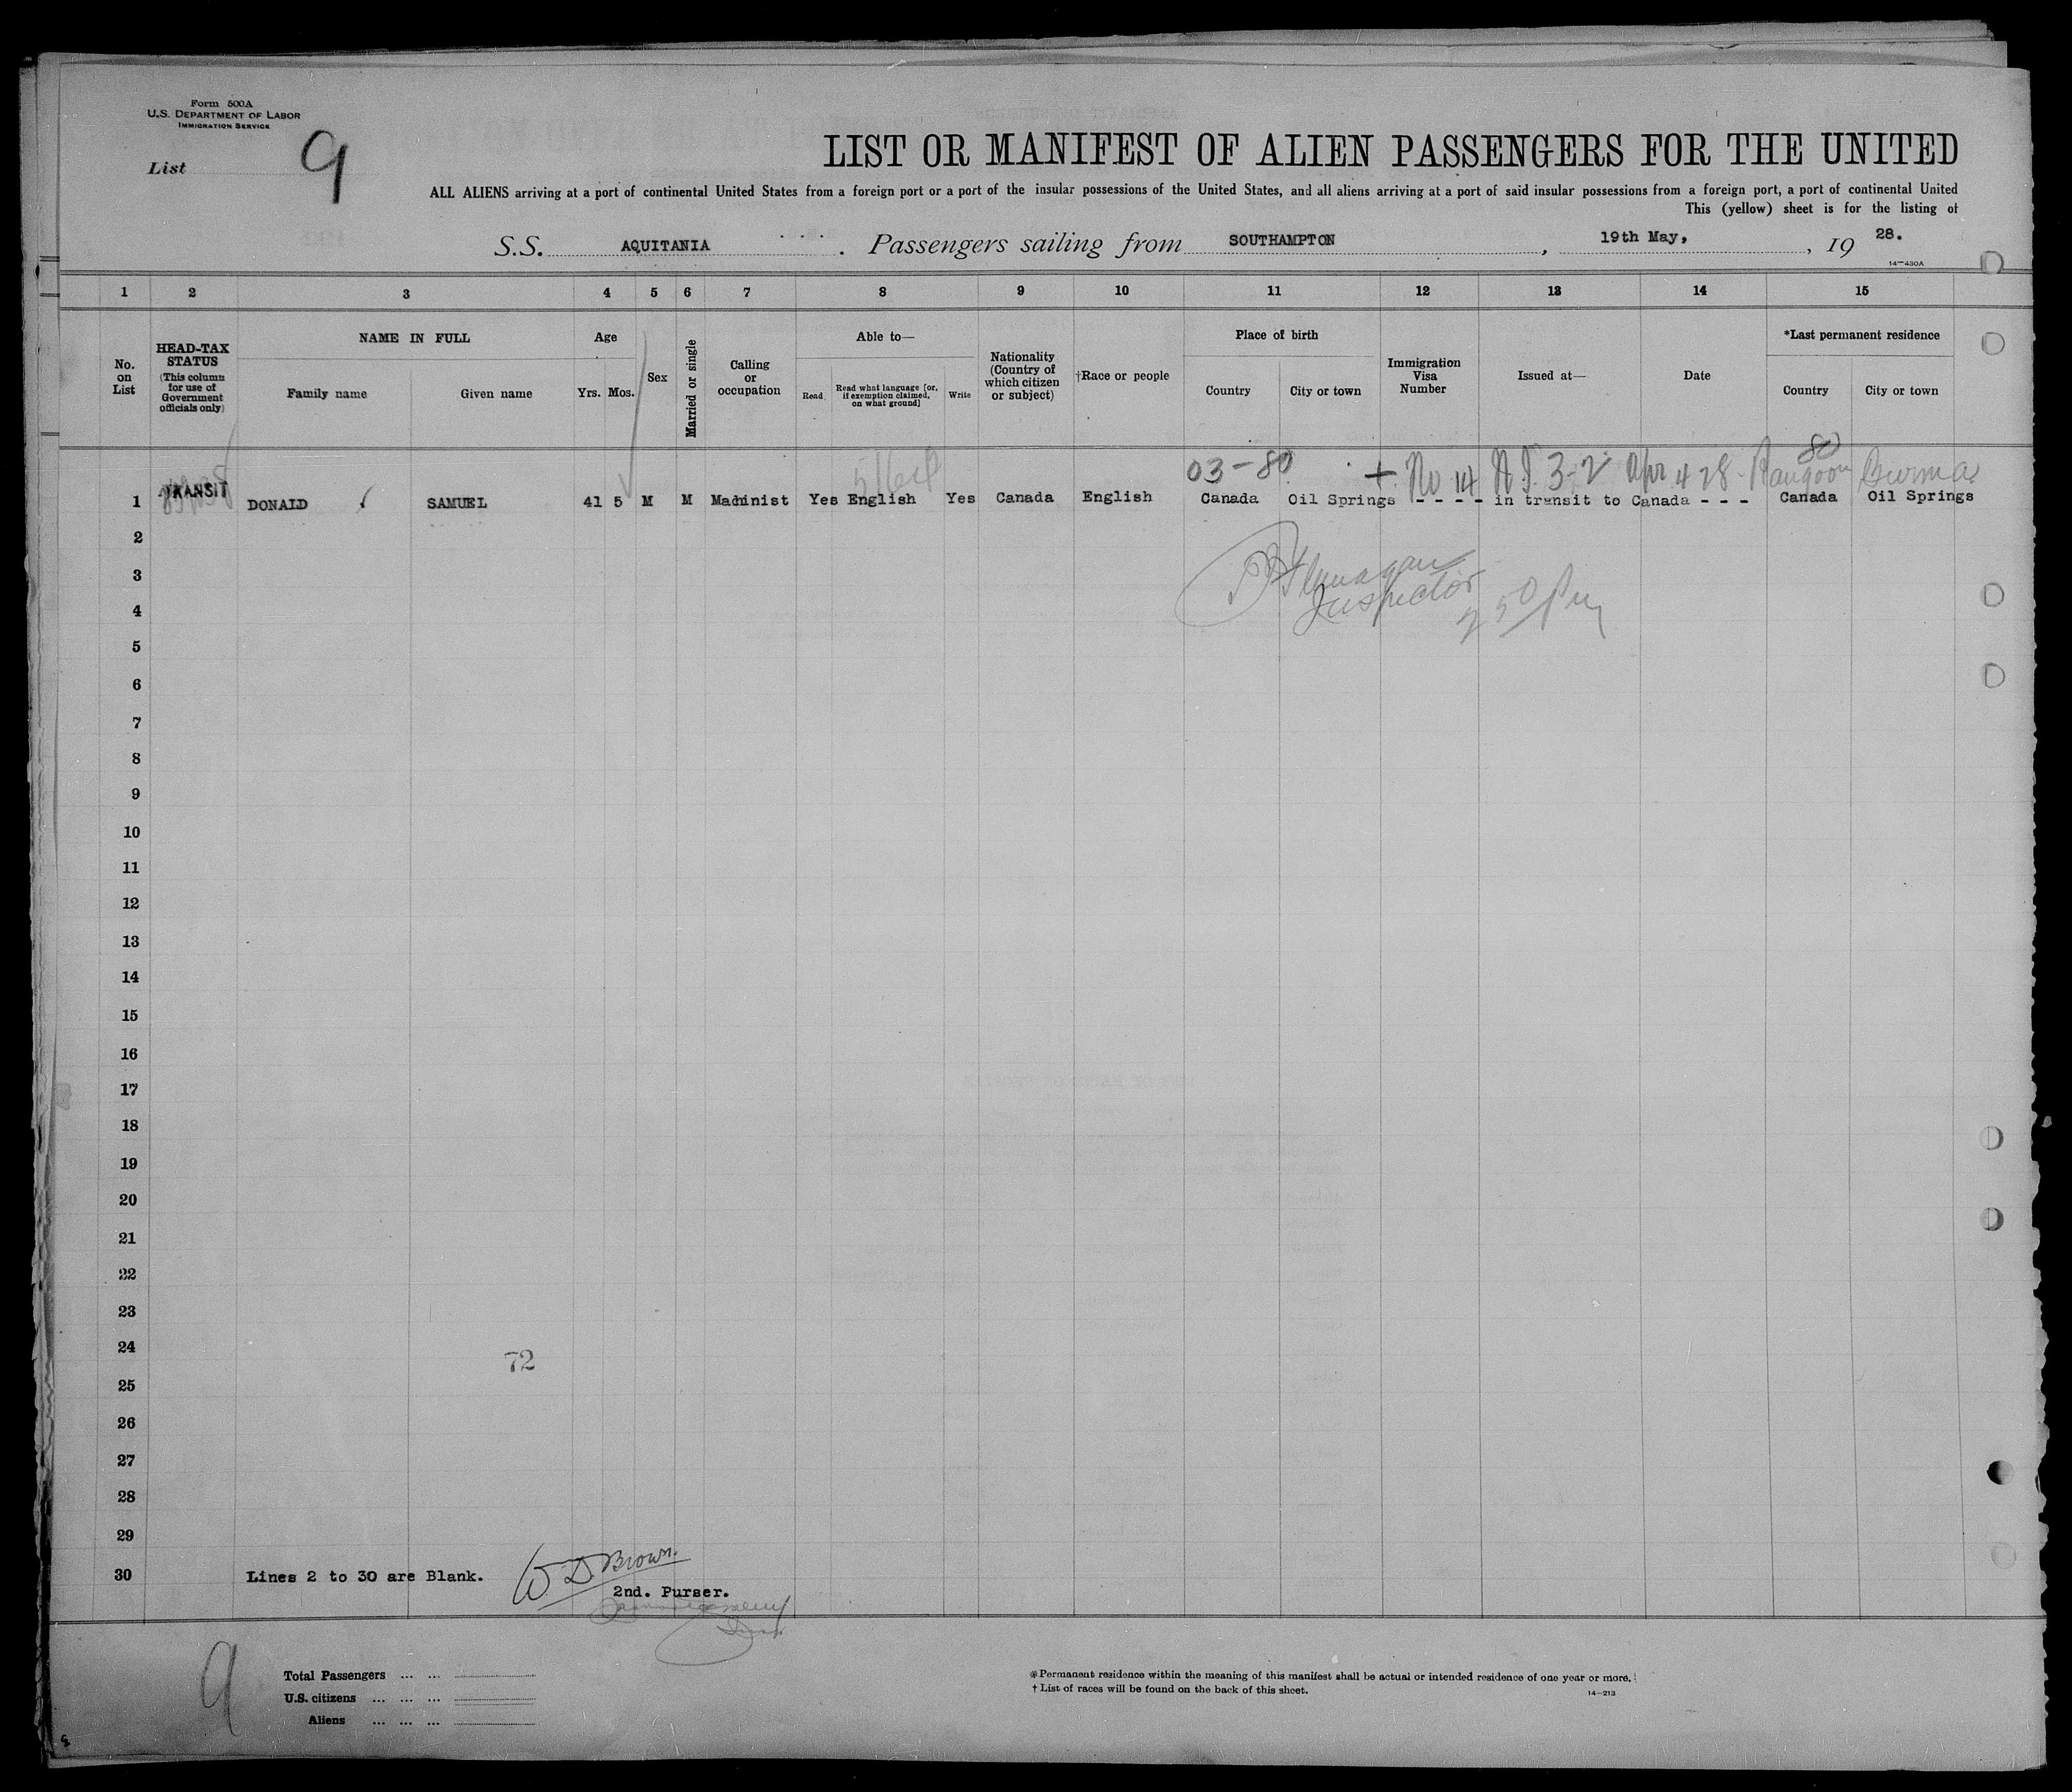 Form 500A
U.S. DEPARTMENT OF LABOR
IMMIGRATION SERVICE
List 9
LIST OR MANIFEST OF ALIEN PASSENGERS FOR THE UNITED
ALL ALIENS arriving at a port of continental United States from a foreign port or a port of the insular possessions of the United States, and all aliens arriving at a port of said insular possessions from a foreign port, a port of continental United
This (yellow) sheet is for the listing of
S.S. AQUITANIA. Passengers sailing from SOUTHAMPTON, 19th May, , 19 28.
14—430A
1 2 3 4 5 6 7 8 9 10 11 12 13 14 15
No. on List
HEAD-TAX STATUS (This column for use of Government officials only)
NAME IN FULL
Family name Given name
Age
Yrs. Mos.
Sex
Married or single
Calling or occupation
Able to—
Read Read what language [or, if exemption claimed, on what ground] Write
Nationality (Country of which citizen or subject)
†Race or people
Place of birth
Country City or town
Immigration Visa Number
Issued at—
Date
*Last permanent residence
Country City or town
03-80 + No 14 3-2 Apr 4 28 Rangoon Burma
80
1 TRANSIT DONALD SAMUEL 41 5 M M Machinist Yes English Yes Canada English Canada Oil Springs - - - - in transit to Canada - - - Canada Oil Springs
2
3 Flanagan
4 Inspector
250 Pm
5
6
7
8
9
10
11
12
13
14
15
16
17
18
19
20
21
22
23
24
72
25
26
27
28
29
30 Lines 2 to 30 are Blank. W D Brown.
2nd. Purser.
9
Total Passengers ... ...
U.S. citizens ... ... ...
Aliens ... ... ...
*Permanent residence within the meaning of this manifest shall be actual or intended residence of one year or more.
† List of races will be found on the back of this sheet.
14—213